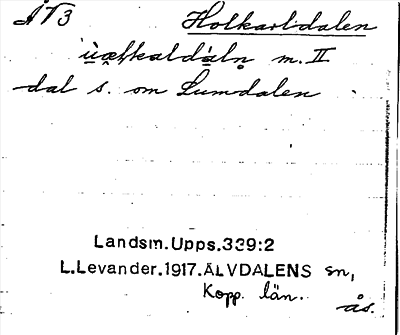 ÅT3 Holkarlsdalen
m. II
dal s. om Lumdalen
Landsm.Upps.339:2
L.Levander.1917.ÄLVDALENS sn,
Kopp. län.
ås.